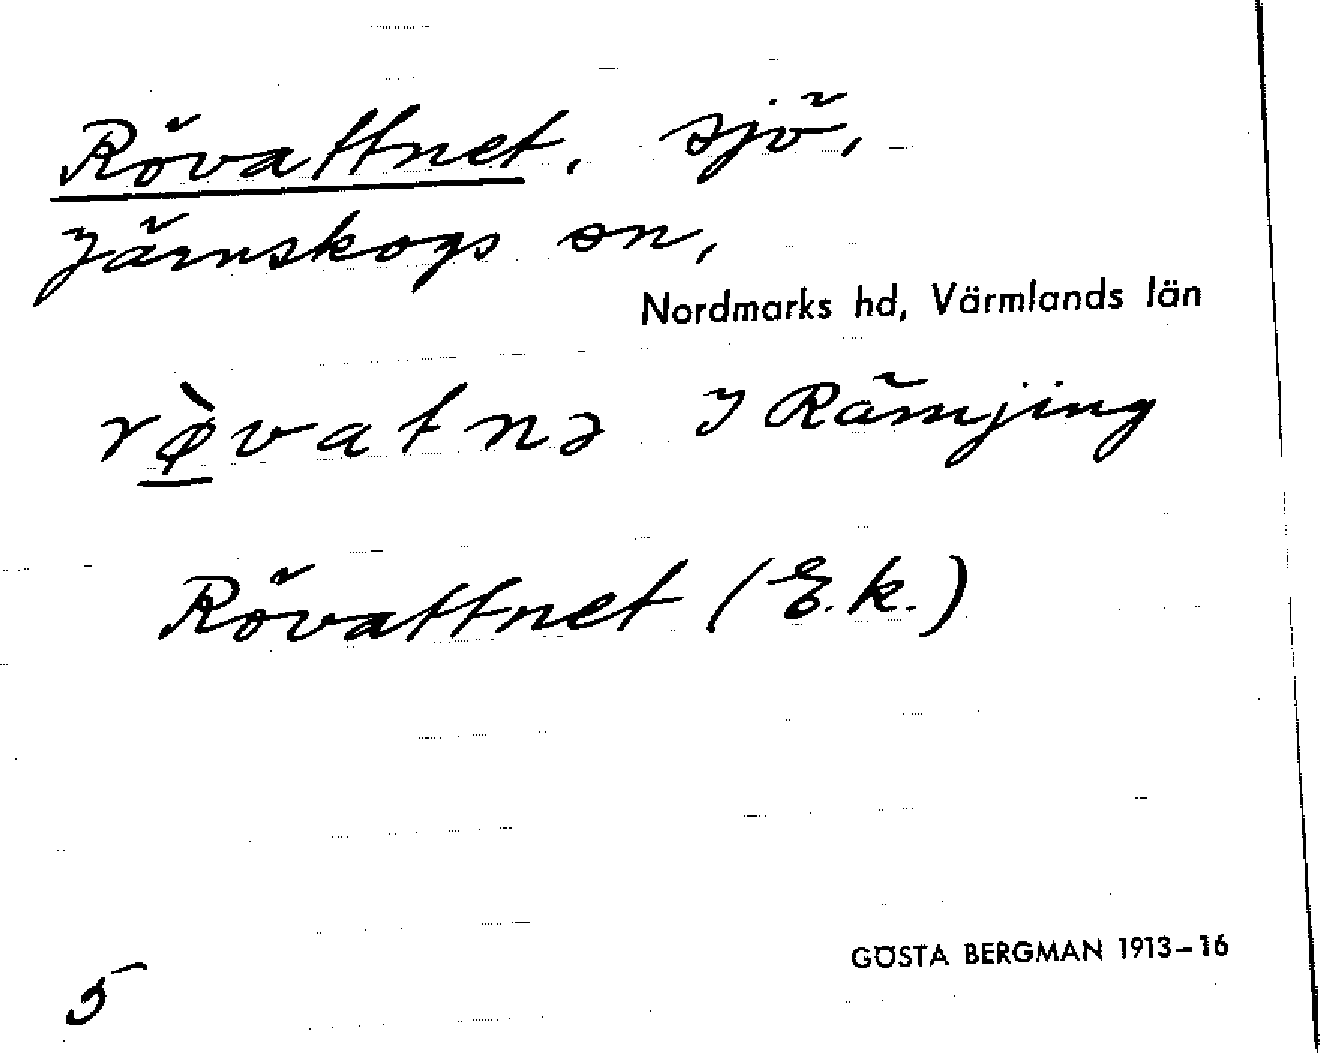 Rövattnet, sjö,
Järnskogs sn,
Nordmarks hd, Värmlands län
rø̀vatnə I Rämjing
Rövattnet (E.k.)
GÖSTA BERGMAN 1913-16
5